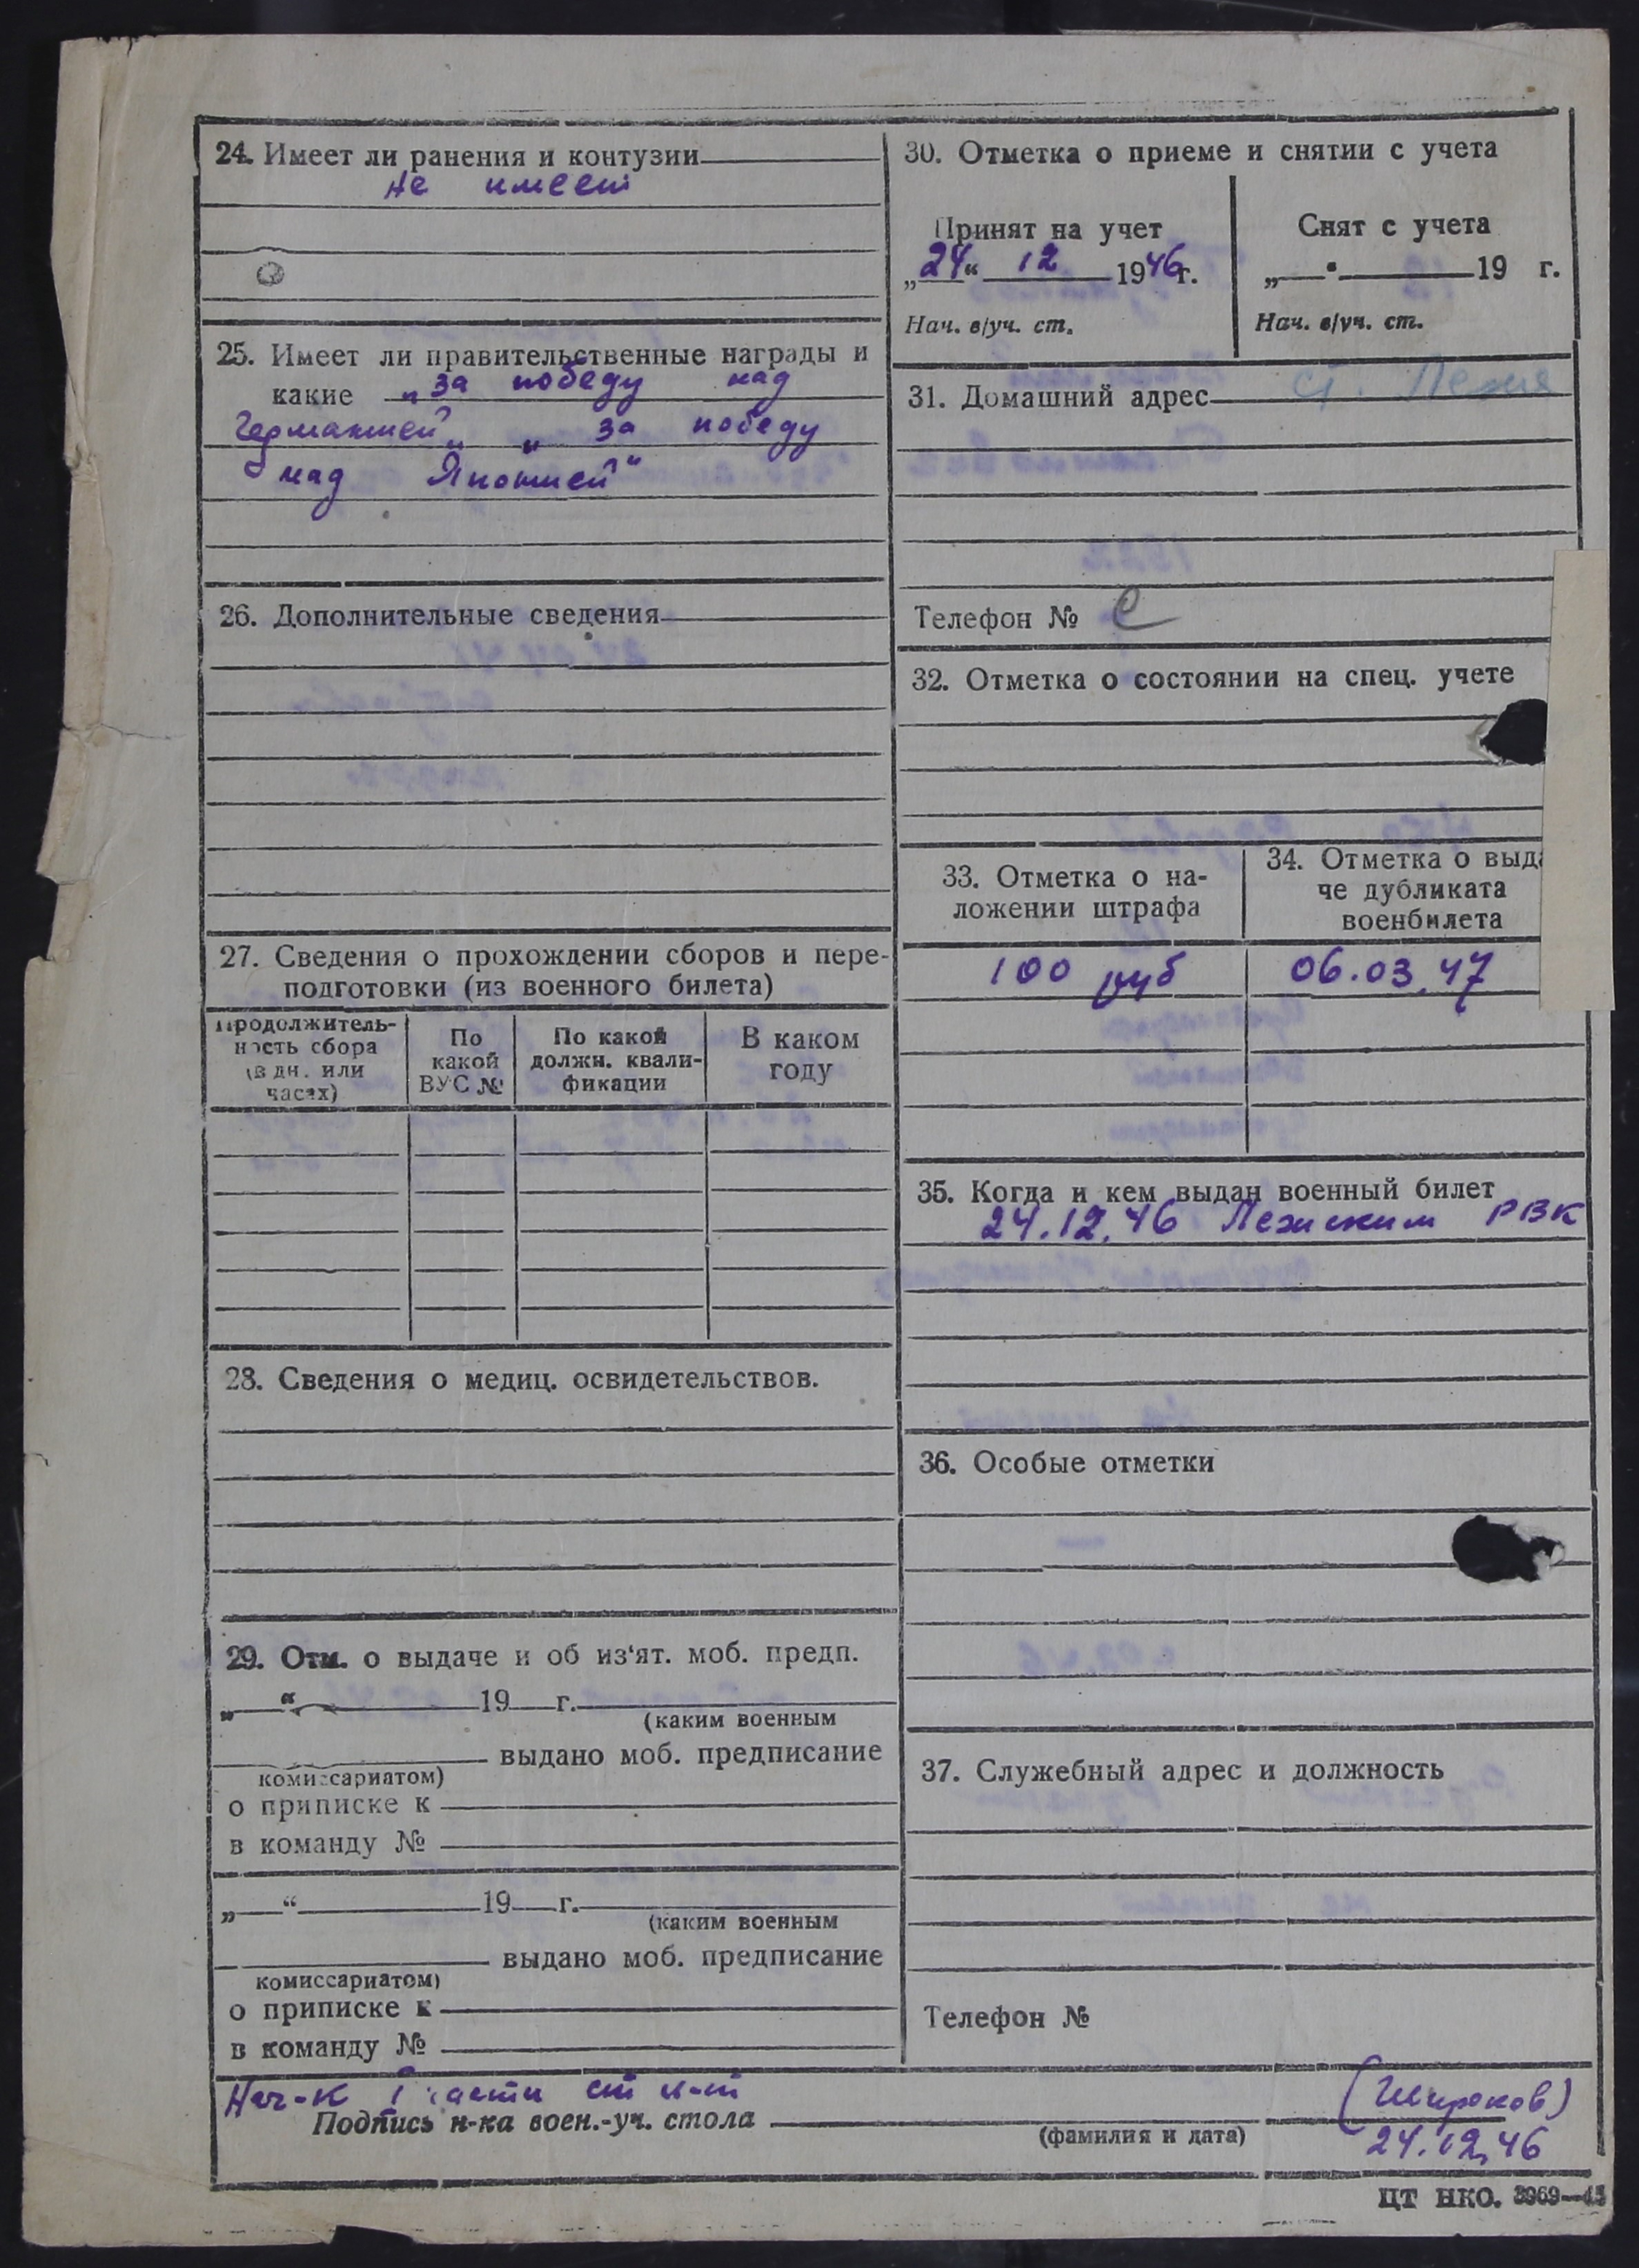 24. Имеет ли ранения и контузии
не имеет
25. Имеет ли правительственные награды и
какие „за победу над
Германией„ „за победу
над Японией"
26. Дополнительные сведения
27. Сведения о прохождении сборов и пере-
подготовки (из военного билета)
Продолжитель-
ность сбора
(в дн. или
часах)
По
какой
ВУС №
По какой
должн. квали-
фикации
В каком
году
28. Сведения о медиц. освидетельствов.
29. Отм. о выдаче и об из‘ят. моб. предп.
„ “ 19 г.
(каким военным
выдано моб. предписание
комиссариатом)
о приписке к
в команду №
„ “ 19 г.
(каким военным
выдано моб. предписание
комиссариатом)
о приписке к
в команду №
30. Отметка о приеме и снятии с учета
Принят на учет
„24“ 12 1946г.
Нач. в/уч. ст.
Снят с учета
„ “ 19 г.
Нач. в/уч. ст.
31. Домашний адрес ст. Лежа
Телефон №
32. Отметка о состоянии на спец. учете
33. Отметка о на-
ложении штрафа
100 руб
34. Отметка о выда
че дубликата
военбилета
06.03.47
35. Когда и кем выдан военный билет
24.12.46 Лежским РВК
36. Особые отметки
37. Служебный адрес и должность
Телефон №
Нач-к части ст л-т
(Широков)
Подпись н-ка воен.-уч. стола
(фамилия и дата)
24.12.46
ЦТ НКО. 3969—45